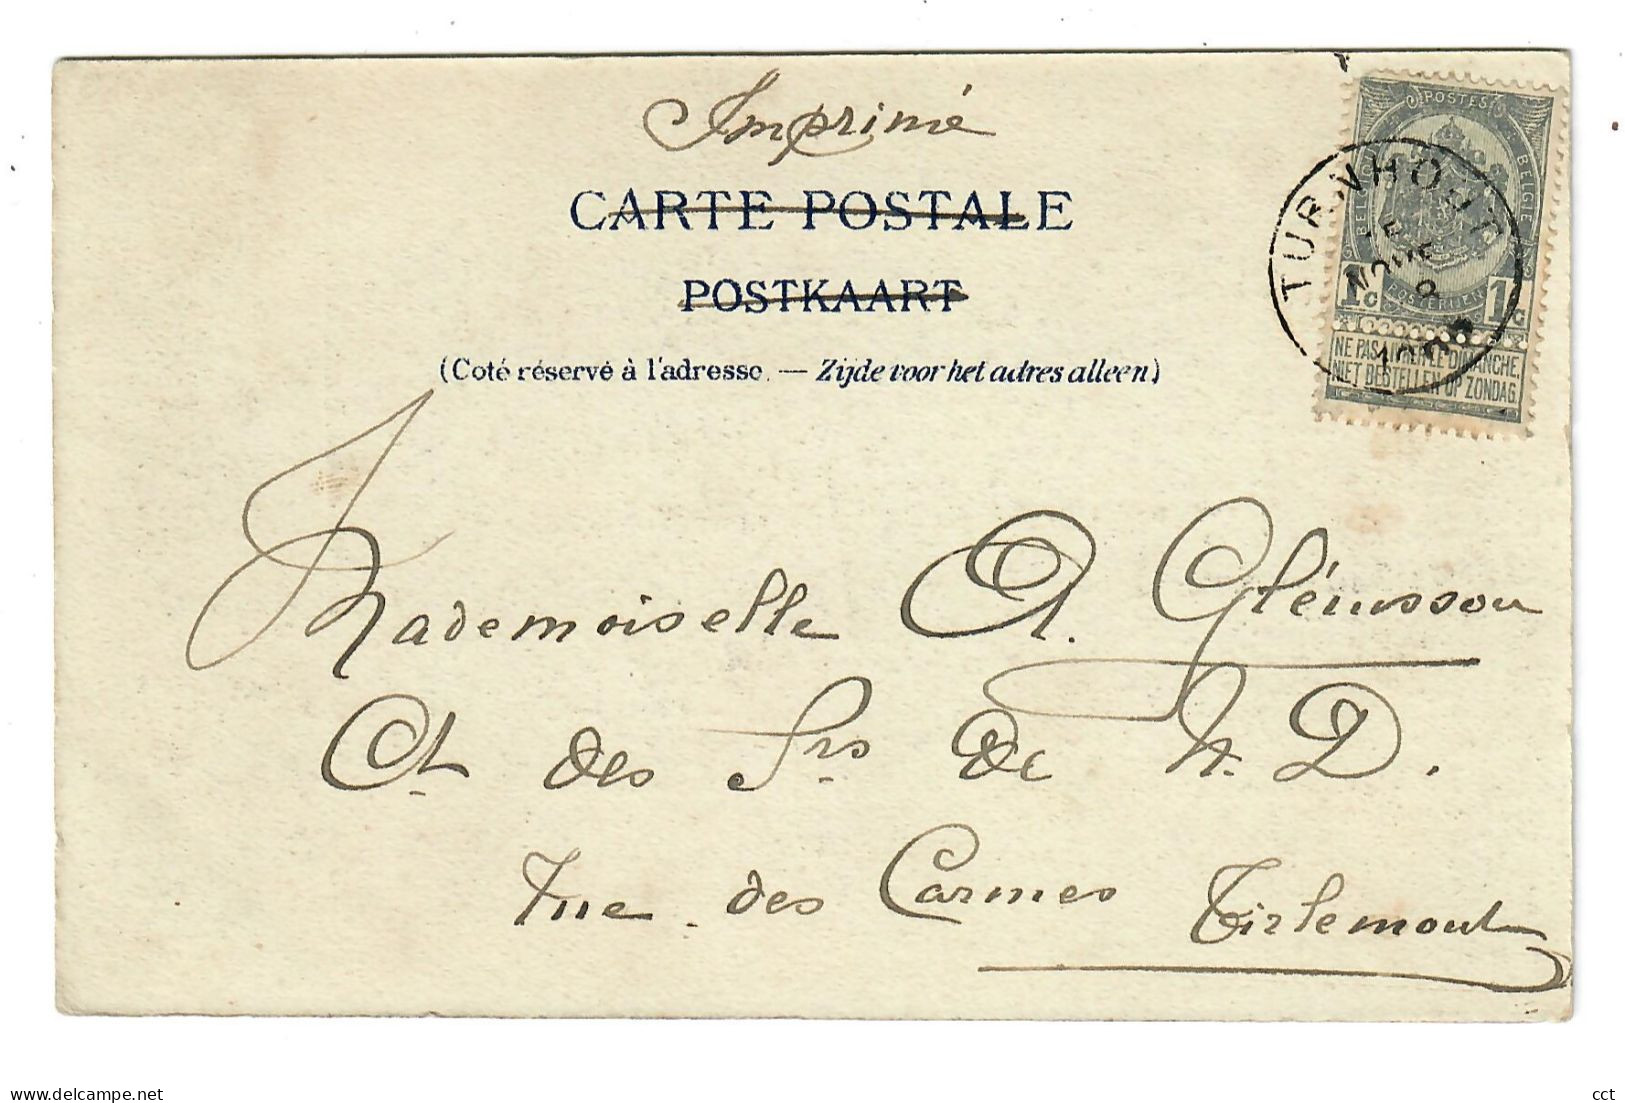 Imprimé
CARTE POSTALE
POSTKAART
(Coté réservé à l'adresse. — Zijde voor het adres alleen)
POSTES BELGIQUE BELGIË POSTERIJEN
1c 1c
NE PAS LIVRER LE DIMANCHE.
NIET BESTELLEN OP ZONDAG.
TURNHOUT
15
NOVE
Mademoiselle A. Glénisson
Ct. des Srs de N. D.
rue des Carmes Tirlemont
delcampe.net
cct